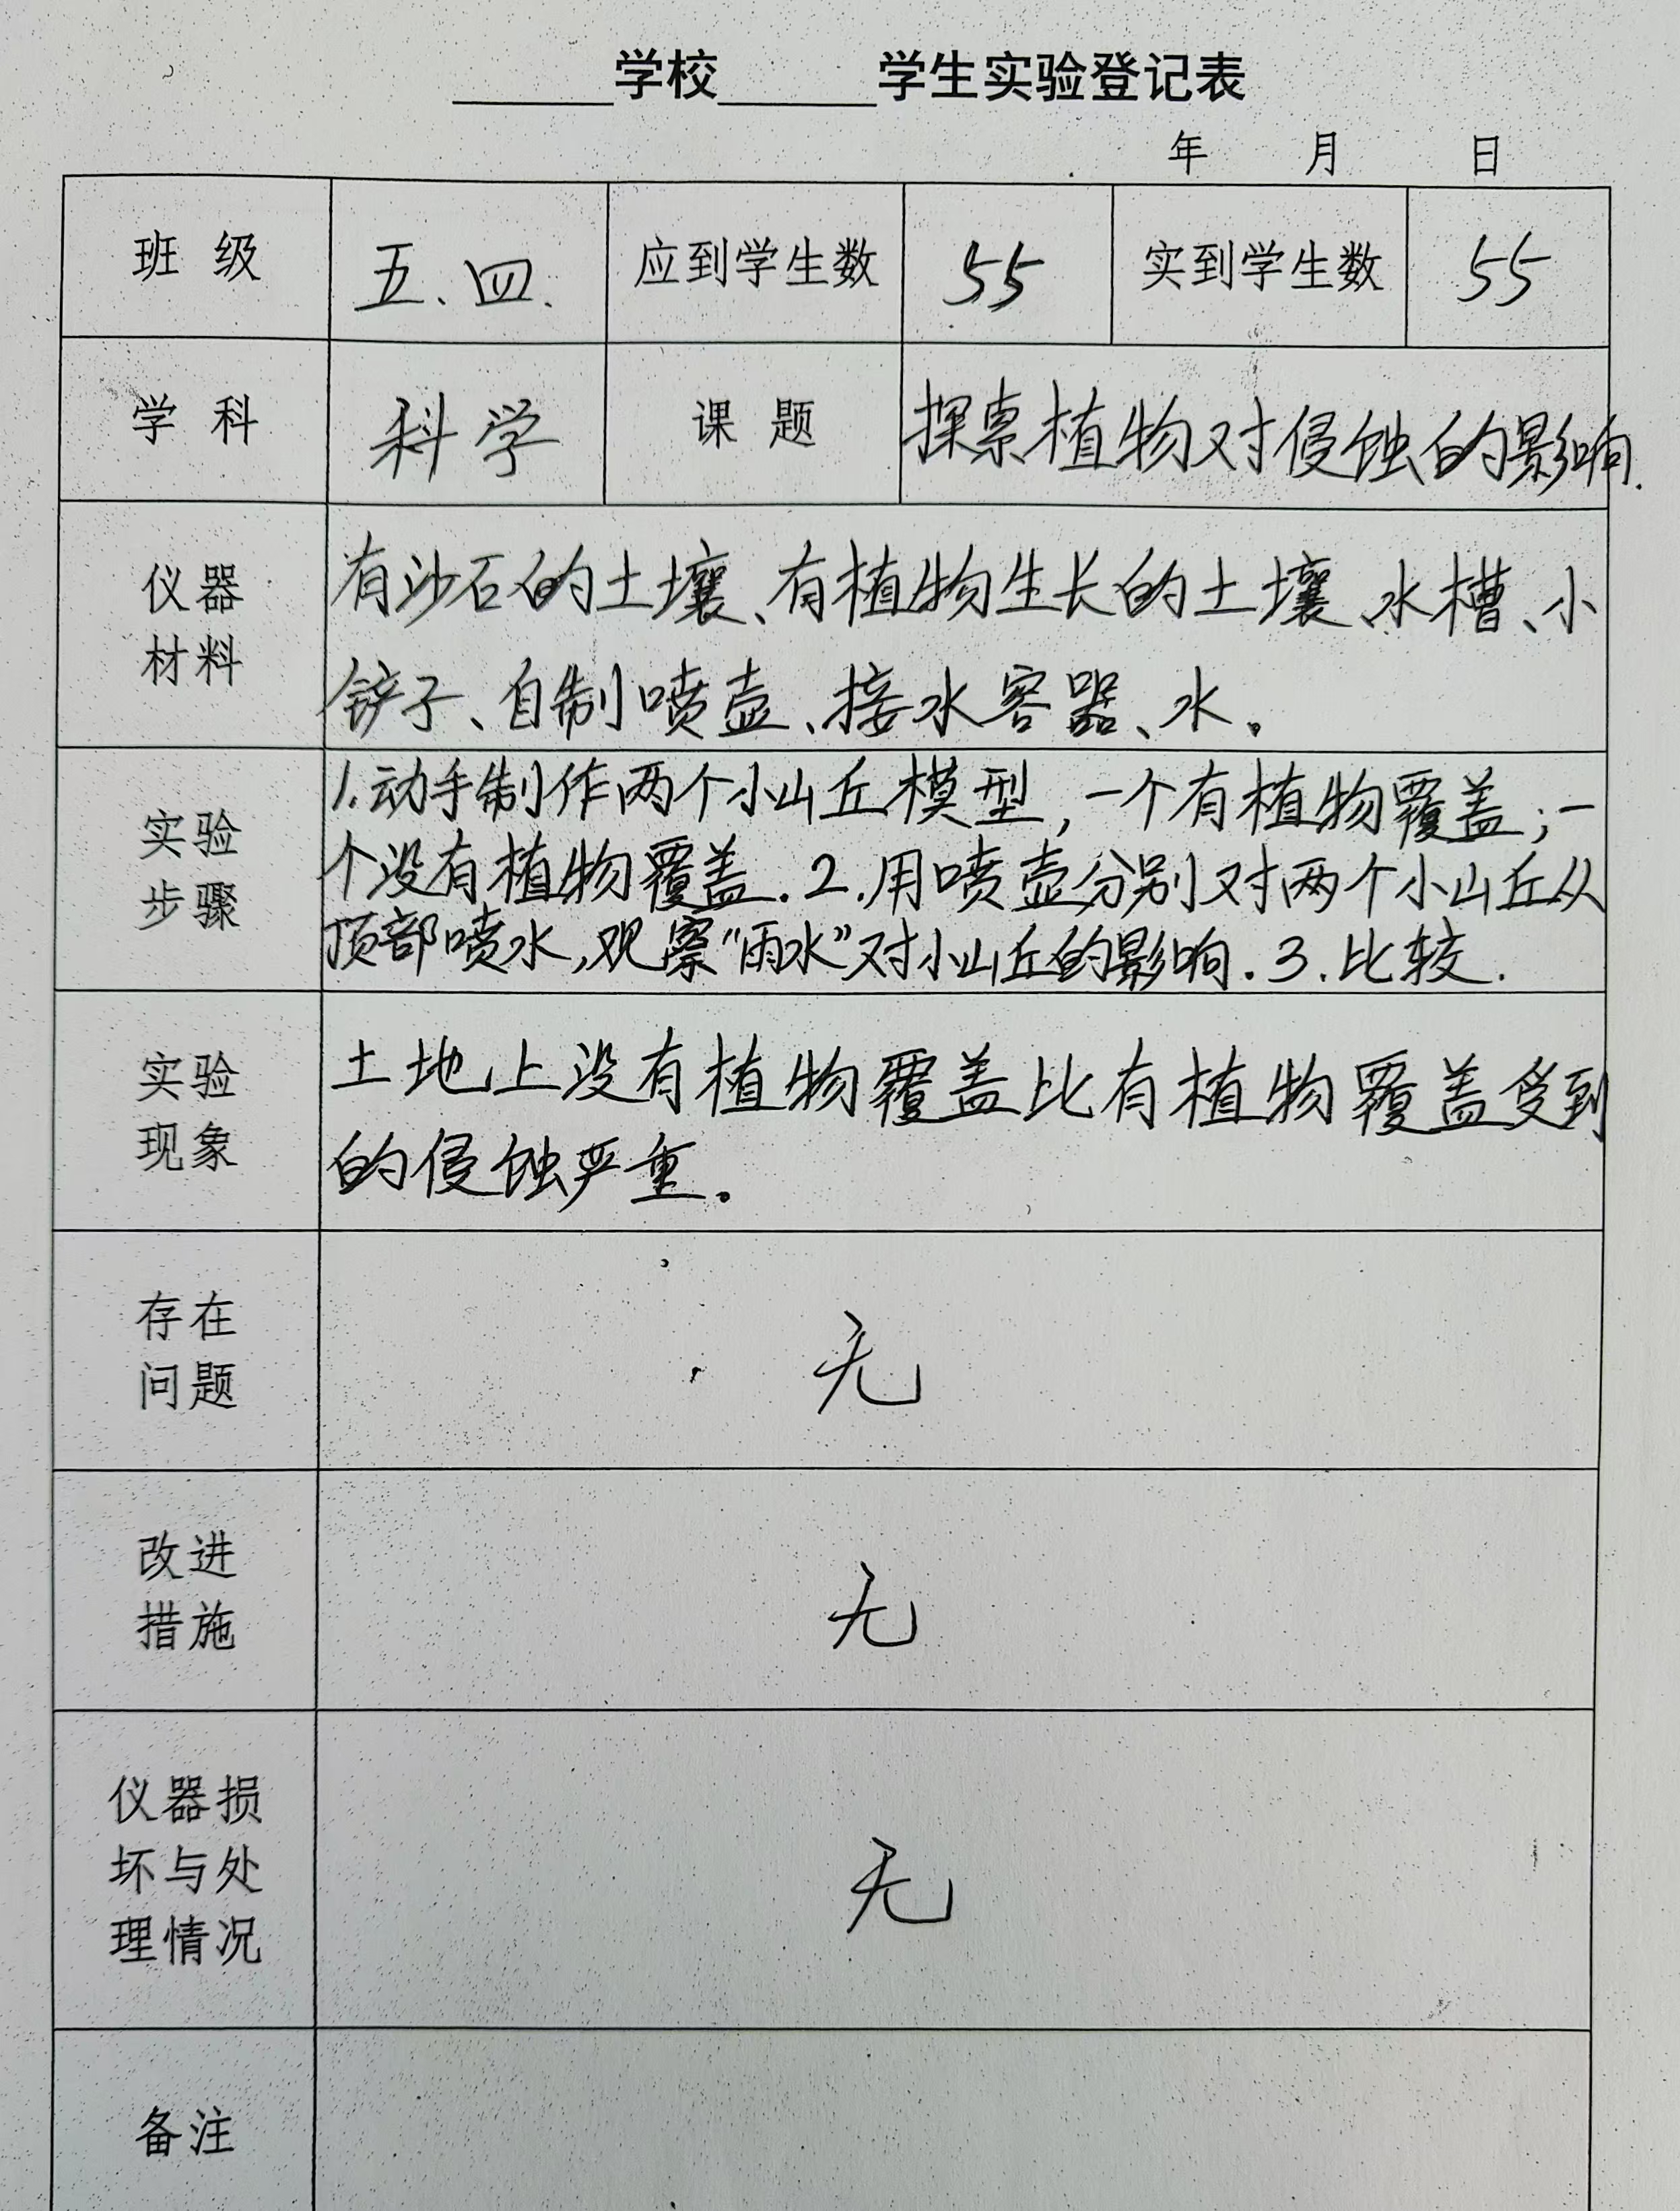 ______学校______学生实验登记表
年 月 日
班 级 五、四. 应到学生数 55 实到学生数 55
学 科 科学 课 题 探索植物对侵蚀的影响.
仪器
材料
有沙石的土壤、有植物生长的土壤、水槽、小
铲子、自制喷壶、接水容器、水。
实验
步骤
1.动手制作两个小山丘模型,一个有植物覆盖;一
个没有植物覆盖.2.用喷壶分别对两个小山丘从
顶部喷水,观察“雨水”对小山丘的影响.3.比较.
实验
现象
土地上没有植物覆盖比有植物覆盖受到
的侵蚀严重。
存在
问题
无
改进
措施
无
仪器损
坏与处
理情况
无
备注